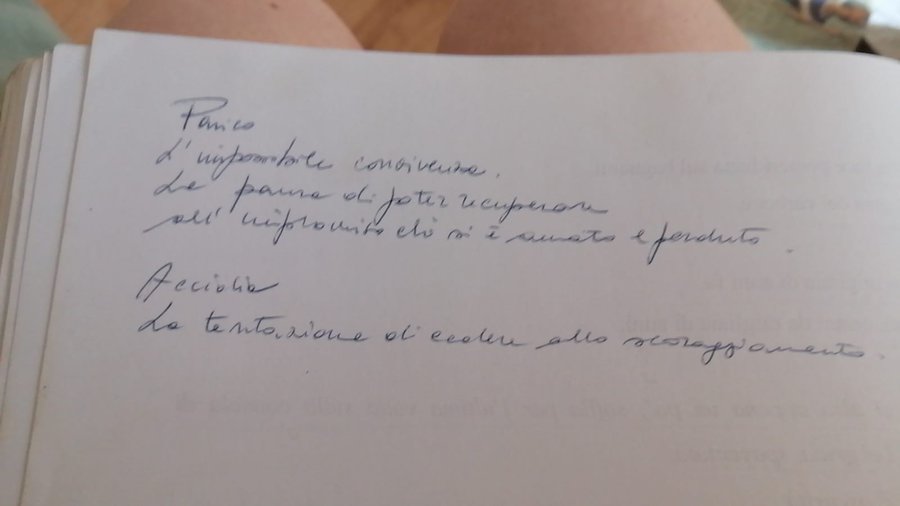 Panico
L'impossibile convivenza.
La paura di poter recuperare
all'improvviso ciò si è amato e perduto.
Accidia
La tentazione di cedere allo scoraggiamento.